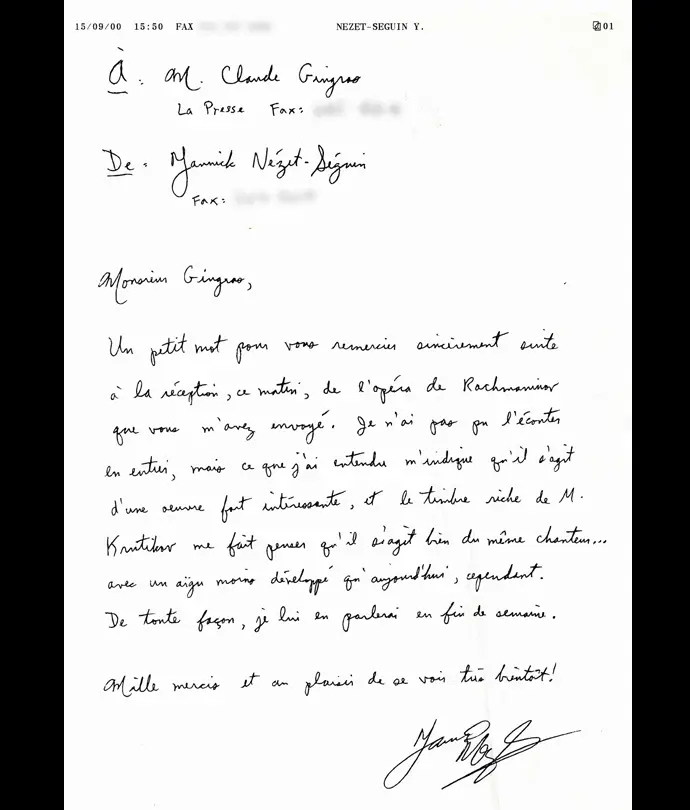 15/09/00 15:50 FAX NEZET-SEGUIN Y. 01
À : M. Claude Gingras
La Presse Fax:
De : Yannick Nézet-Séguin
Fax:
Monsieur Gingras,
Un petit mot pour vous remercier sincèrement suite
à la réception, ce matin, de l'opéra de Rachmaninov
que vous m'avez envoyé. Je n'ai pas pu l'écouter
en entier, mais ce que j'ai entendu m'indique qu'il s'agit
d'une oeuvre fort intéressante, et le timbre riche de M.
Krutikov me fait penser qu'il s'agît bien du même chanteur...
avec un aigu moins développé qu'aujourd'hui, cependant.
De toute façon, je lui en parlerai en fin de semaine.
Mille mercis et au plaisir de se voir très bientôt!